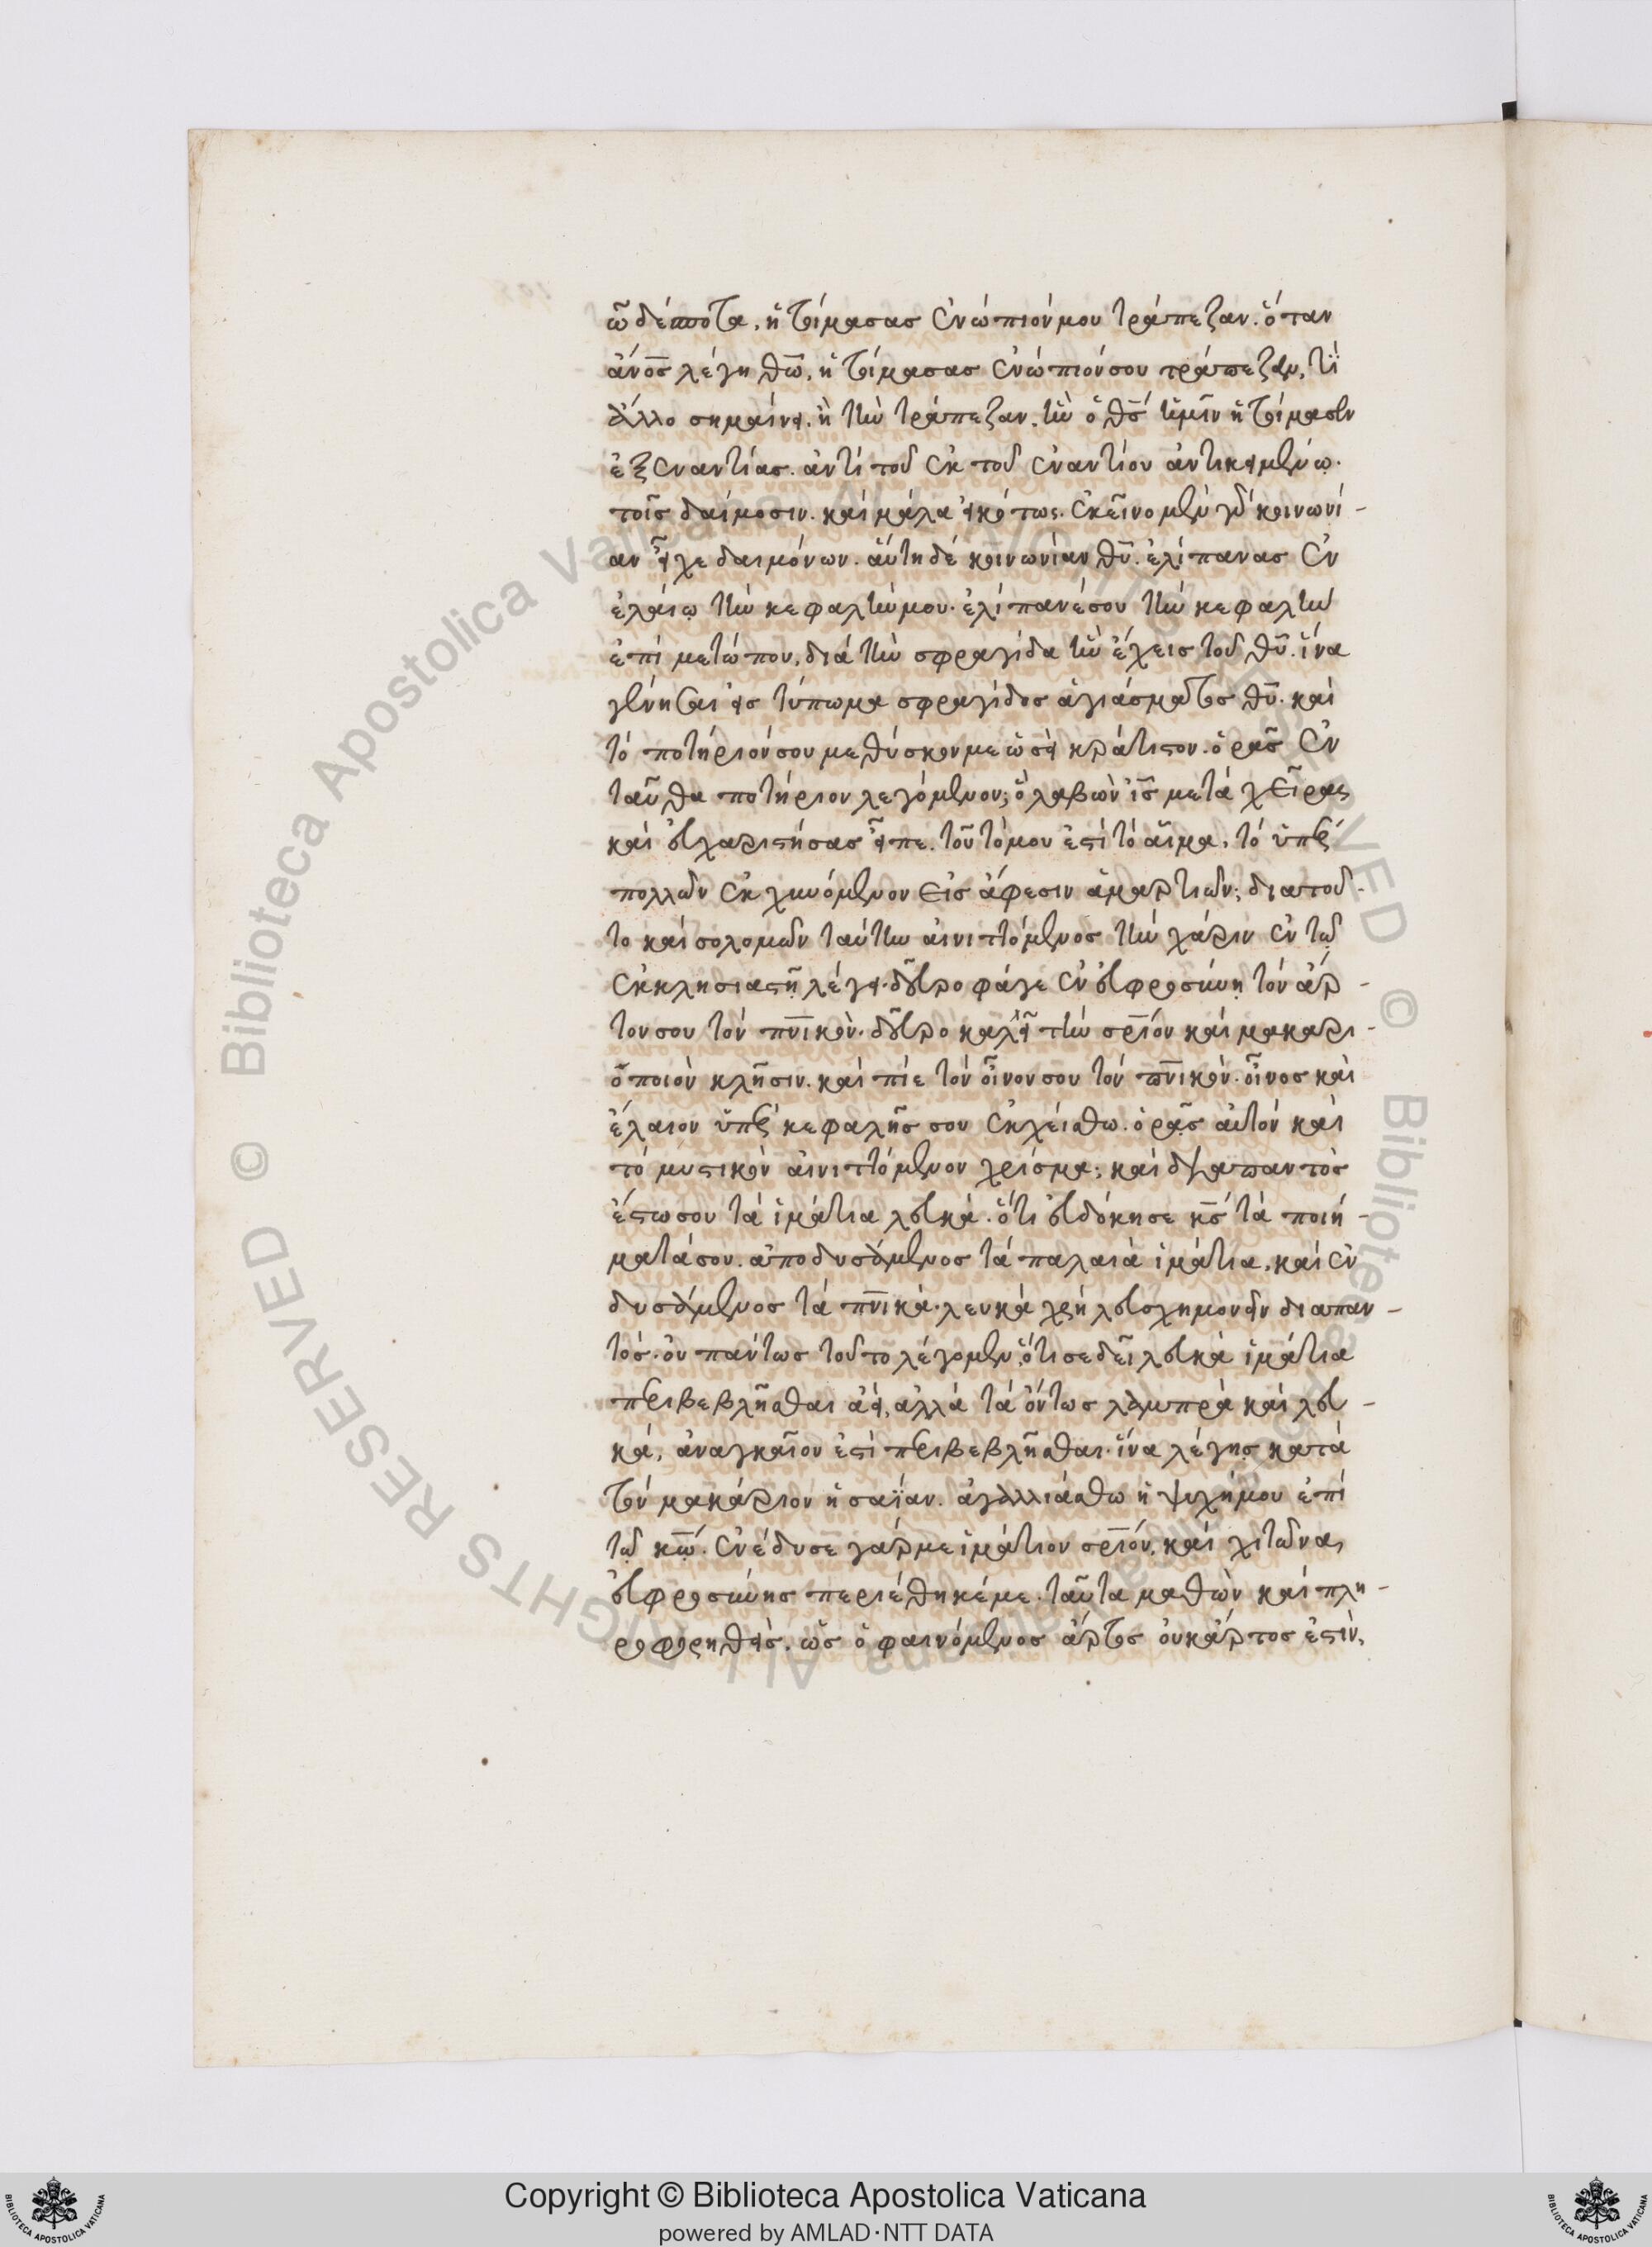 ὦ δέσποτα, ἡτοίμασας ἐνώπιόν μου τράπεζαν. ὅταν
ἄνος λέγη θω, ἡτοίμασας ἐνώπιόν σου τράπεζαν, τί
ἄλλο σημαίνει, ἢ τὴν τράπεζαν, ἣν ὁ θς ἡμῖν ἡτοίμασεν
ἐξεναντίας. ἀντὶ τοῦ ἐκ τοῦ ἐναντίου ἀντικειμένω.
τοῖς δαίμοσιν. καὶ μάλα εἰκότως. ἐκεῖνο μὲν γὰρ κοινωνί-
αν εἶχε δαιμόνων. αὕτη δὲ κοινωνίαν θυ. ἐλίπανας ἐν
ἐλαίῳ τὴν κεφαλήν μου. ἐλίπανέ σου τὴν κεφαλὴν
ἐπὶ μετώπου, διὰ τὴν σφραγίδα ἣν ἔχεις τοῦ θυ. ἵνα
γένηται εἰς τύπωμα σφραγίδος ἁγιάσματος θυ. καὶ
τὸ ποτήριόν σου μεθύσκον με ὡσεὶ κράτιστον. ὁρᾶς ἐν
ταῦθα ποτήριον λεγόμενον; ὃ λαβὼν ις μετὰ χεῖρας
καὶ εὐχαριστήσας εἶπε. τοῦτό μου ἐστὶ τὸ αἷμα, τὸ ὑπὲρ
πολλῶν ἐκχυνόμενον εἰς ἄφεσιν ἁμαρτιῶν; διατοῦ-
το καὶ σολομῶν ταύτην αἰνιττόμενος τὴν χάριν ἐν τῷ
ἐκκλησιαστῇ λέγει. δεῦρο φάγε ἐν εὐφροσύνη τὸν ἄρ-
τον σου τὸν πνικόν. δεῦρο καλεῖ τὴν σριον καὶ μακαρι-
οποιὸν κλῆσιν. καὶ πίε τὸν οἶνον σου τὸν πνικόν. οἶνος καὶ
ἔλαιον ὑπὲρ κεφαλῆς σου ἐκχείσθω. ὁρᾶς αὐτὸν καὶ
τὸ μυστικὸν αἰνιττόμενον χρίσμα; καὶ διαπαντὸς
ἔστω σου τὰ ἱμάτια λευκά. ὅτι εὐδόκησε κς τὰ ποιή-
ματά σου. ἀποδυσάμενος τὰ παλαιὰ ἱμάτια, καὶ ἐν
δυσάμενος τὰ πνικὰ. λευκὰ χρὴ λευσχημονεῖν διαπαν-
τός. οὐ πάντως τοῦτο λέγομεν, ὅτι σε δεῖ λευκὰ ἱμάτια
περιβεβλῆσθαι ἀεὶ, ἀλλὰ τὰ ὄντως λαμπρὰ καὶ λευ-
κά, ἀναγκαῖον ἐστὶ περιβεβλῆσθαι. ἵνα λέγῃς κατὰ
τὸν μακάριον ἡσαΐαν. ἀγαλλιάσθω ἡ ψυχή μου ἐπὶ
τῷ κω. ἐνέδυσε γάρ με ἱμάτιον σριον, καὶ χιτῶνα
εὐφροσύνης περιέθηκέ με. ταῦτα μαθὼν καὶ πλη-
ροφορηθεὶς, ὡς ὁ φαινόμενος ἄρτος οὐκ ἄρτος ἐστὶν,